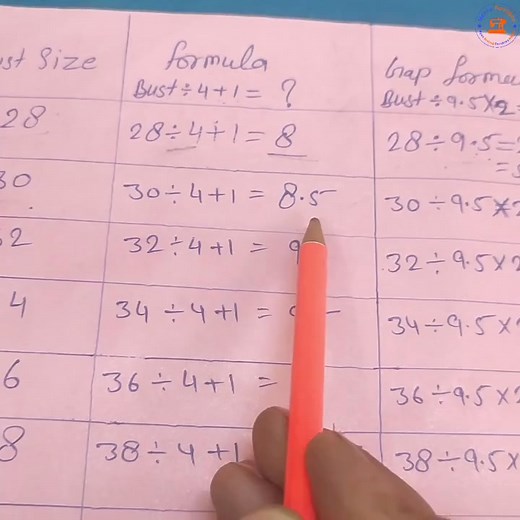 Size formula
Bust ÷ 4 + 1 = ? Gap
Bust ÷ 9.5 × 2
28 28 ÷ 4 + 1 = 8 28 ÷ 9.5 =
=
30 30 ÷ 4 + 1 = 8.5 30 ÷ 9.5 ×
2 32 ÷ 4 + 1 = 9 32 ÷ 9.5 × 2
4 34 ÷ 4 + 1 = 34 ÷ 9.5 ×
6 36 ÷ 4 + 1 = 36 ÷ 9.5 ×
8 38 ÷ 4 + 1 38 ÷ 9.5 ×